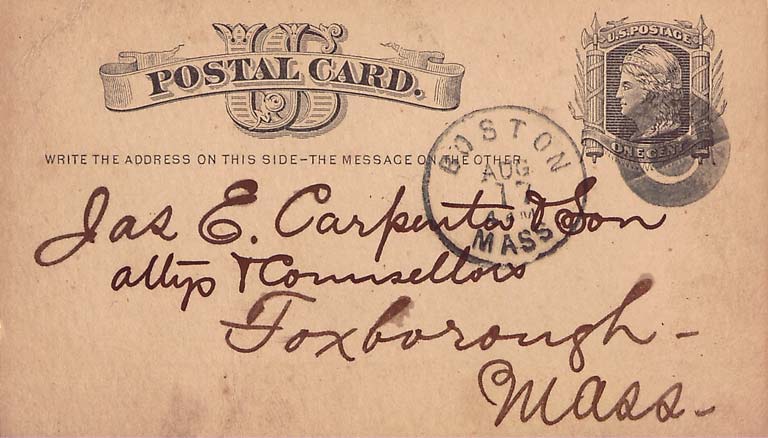 US
POSTAL CARD.
U.S. POSTAGE
ONE CENT
WRITE THE ADDRESS ON THIS SIDE–THE MESSAGE ON THE OTHER
BOSTON
AUG
17
MASS
Jas E. Carpenter & Son
attys & Counsellors
Foxborough –
Mass.